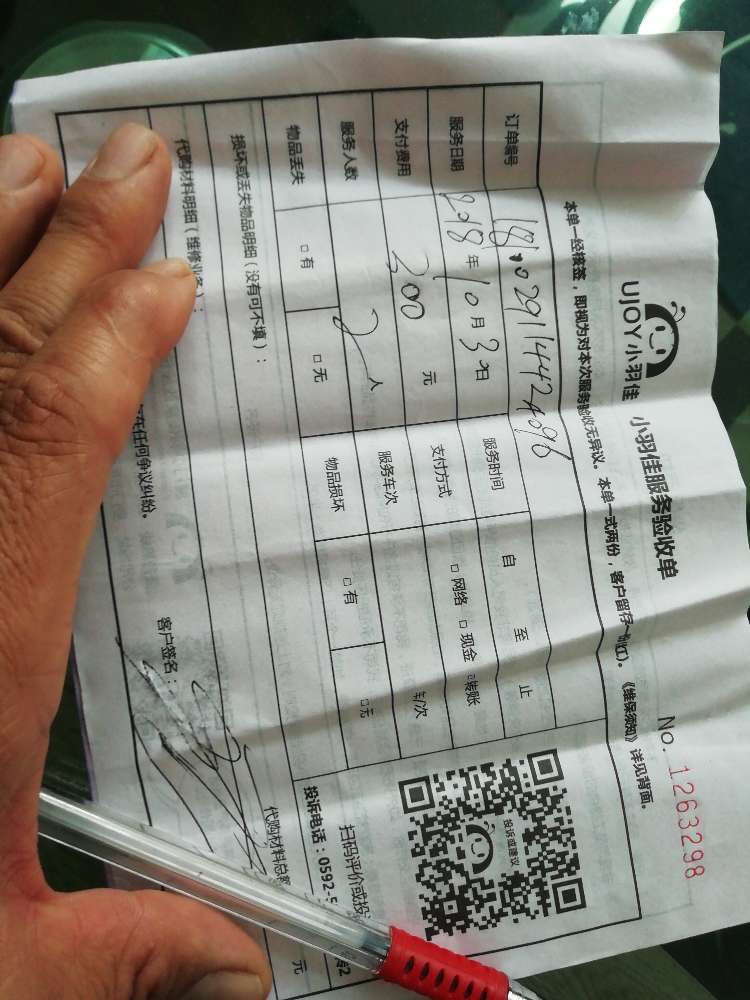 UJOY小羽佳 小羽佳服务验收单 NO. 1263298
本单一经核签，即视为对本次服务验收无异议。本单一式两份，客户留存 《维保须知》详见背面。
订单编号
服务日期 2018年10月3日 服务时间 自 至 止
支付费用 200元 支付方式 □网络 □现金 □转账
服务人数 2人 服务车次 车/次
物品丢失 □有 □无 物品损坏 □有 □无
损坏或丢失物品明细（没有可不填）：
代购材料明细（维修业务）： 代购材料总 元
任何争议纠纷。 客户签名：
投诉或建议
扫码评价或投
投诉电话：0592-5